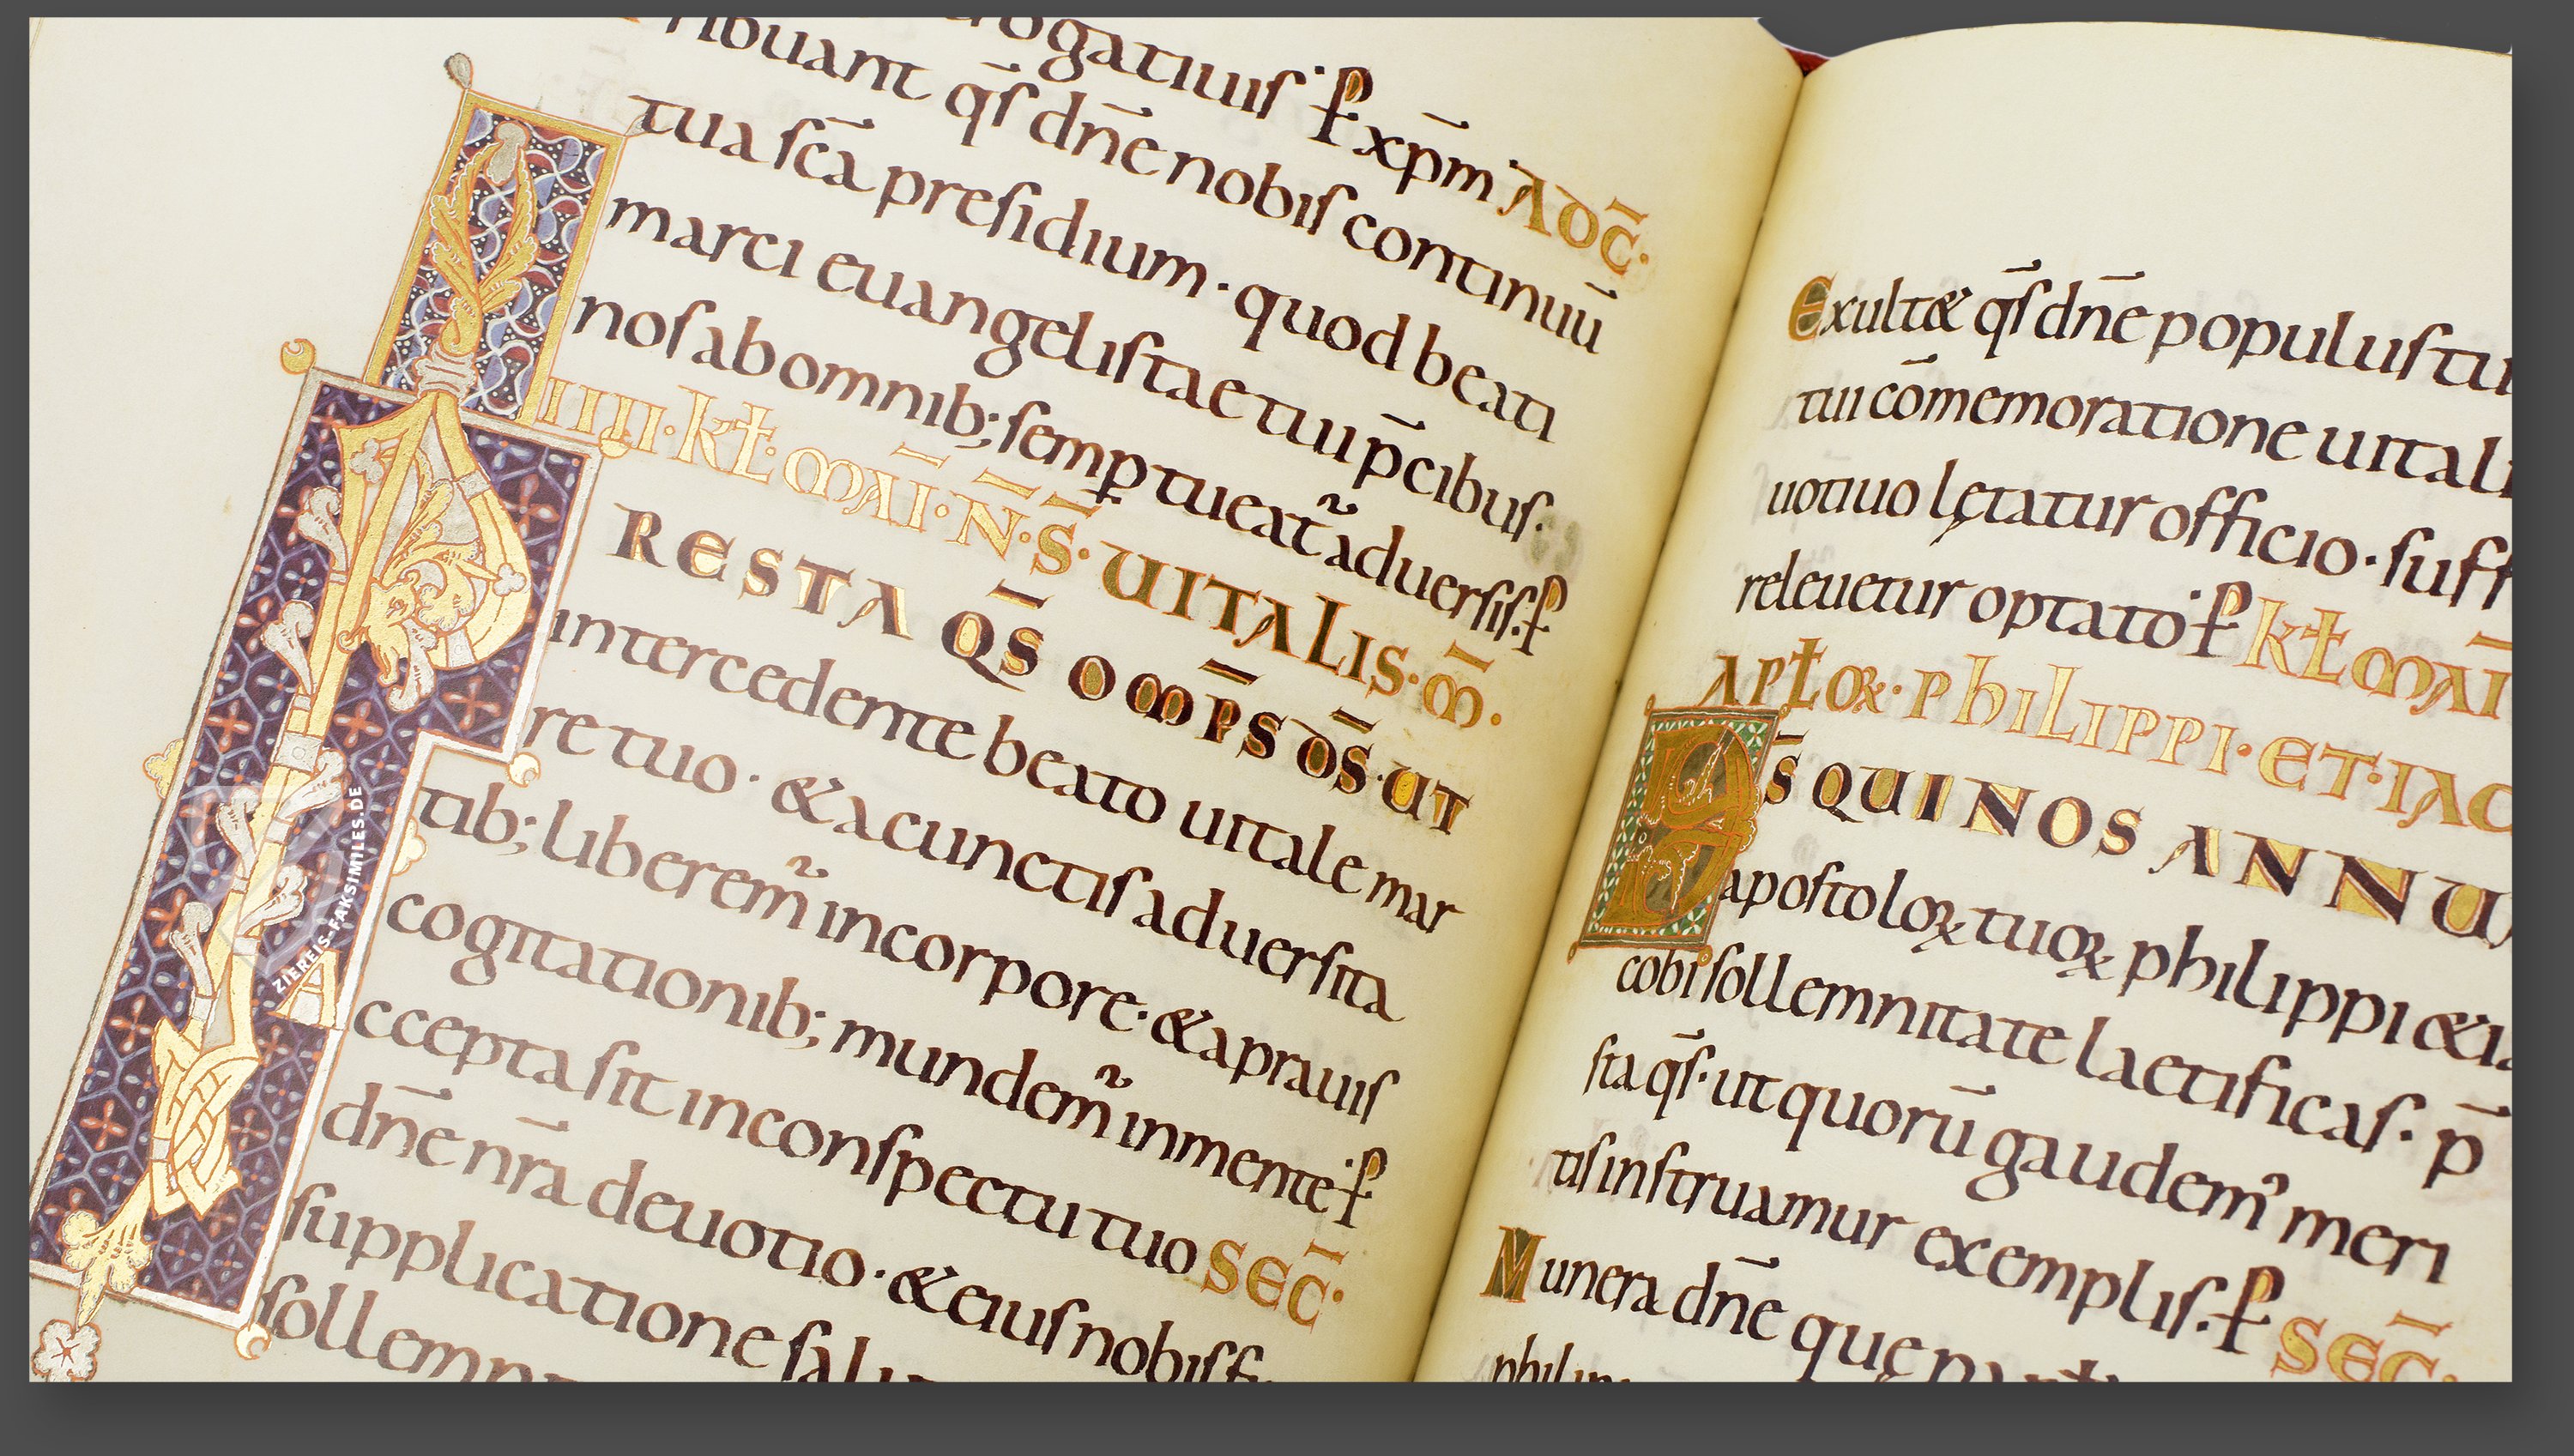 rogatiuis· p xp̄m AD C̄·
ribuant qs̄ dn̄e nobis continuū
tua sc̄a presidium · quod beati
marci euangelistae tui p̄cibus·
nos ab omnib; semp tueat̃ aduersis· p
IIII· kł· MAĪ· N̄· S̄· UITALIS· M̄·
PRESTA QS̄ OMP̄S DS̄· UT
intercedente beato uitale mar
re tuo · & a cunctis aduersita
tib; liberem̃ in corpore· & a prauis
cogitationib; mundem̃ in mente· p
Accepta sit in conspectu tuo SEC̄·
dn̄e nr̄a deuotio · & eius nobis
supplicatione
Exult& qs̄ dn̄e populus tu
tui cōmemoratione uitali
uotiuo lętatur officio · suff
releuetur optato· p kł MAĪ
APŁOꝜ· PhILIPPI· ET· IAC
DS̄ QUI NOS ANNU
apostoloꝝ tuoꝝ philippi & ia
cobi sollemnitate laetificas· p̄
sta qs̄· ut quorū gaudem᾽ meri
tis instruamur exemplis· p SEC̄·
Munera dn̄e quę